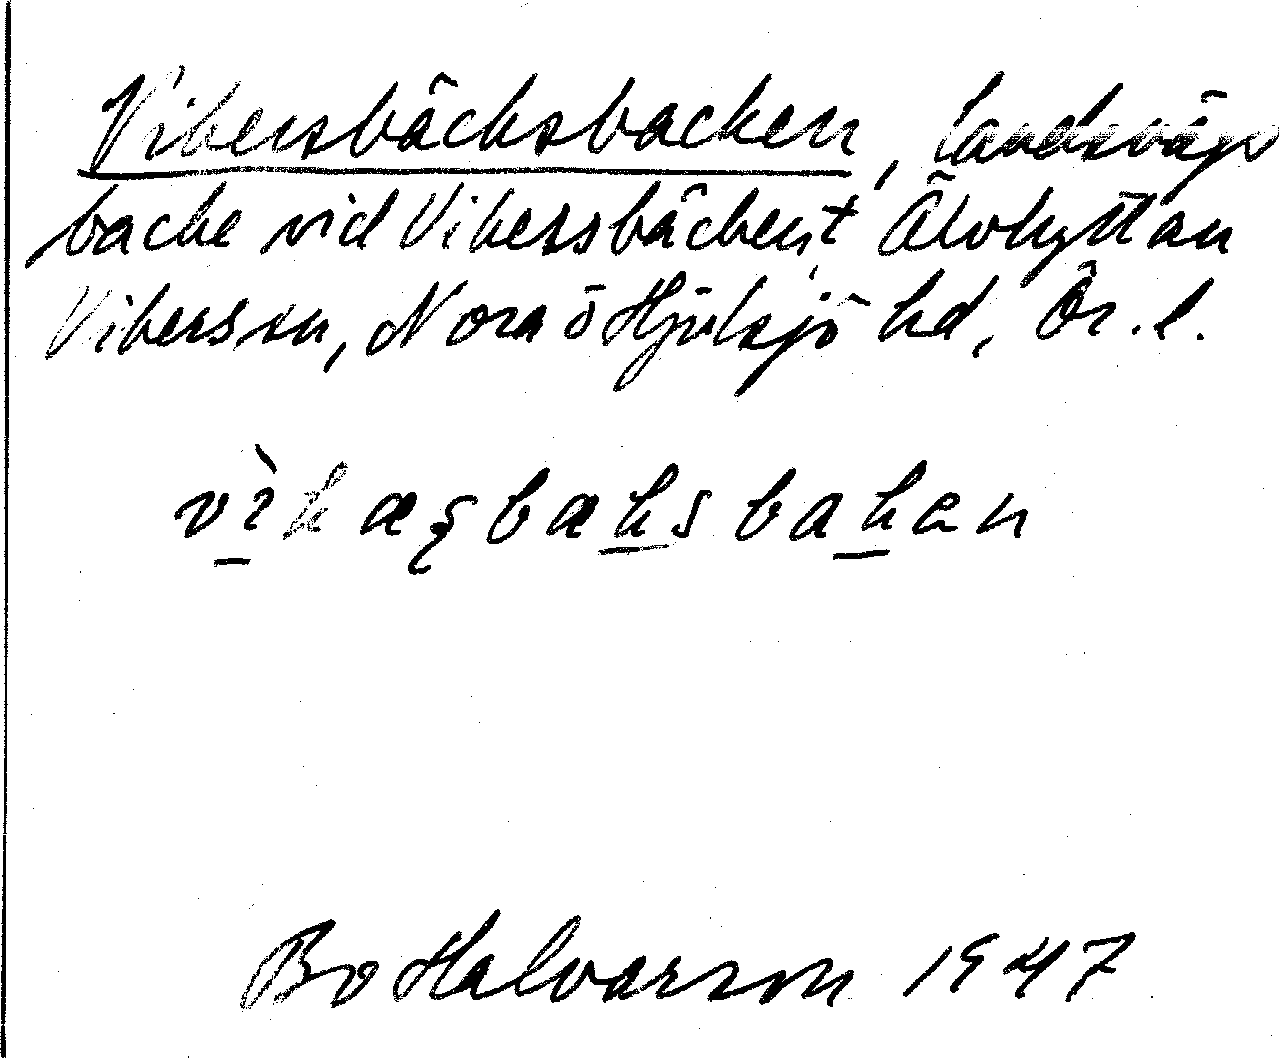 Vikersbäcksbacken, landsvägs
backe vid Vikersbäcken, t Älvhyttan
Vikersson, Nora o Hjulsjö hd, Ör. l.
vìkæʂbæksbakan
Bo Halvarson 1947